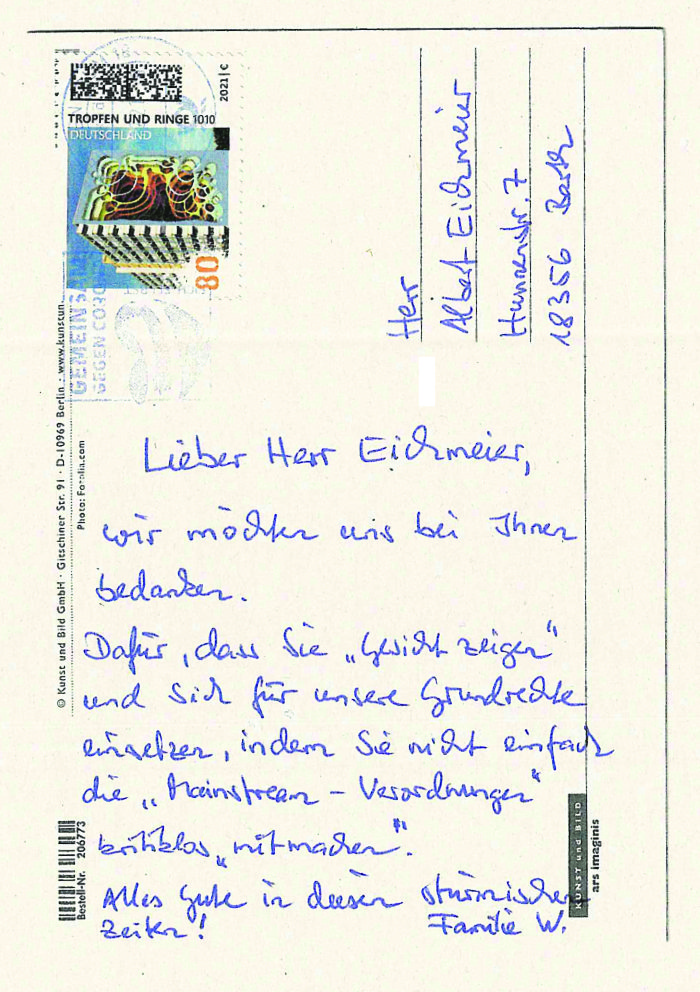 2021 | C
TROPFEN UND RINGE 1010
DEUTSCHLAND
80
GEMEINSAM
GEGEN CORONA
Herr
Albert Eichmeier
Hunnenstr. 7
18356 Barth
Lieber Herr Eichmeier,
wir möchten uns bei Ihnen
bedanken.
Dafür, dass Sie „Gesicht zeigen“
und sich für unsere Grundrechte
einsetzen, indem Sie nicht einfach
die „Mainstream - Verordnungen“
kritiklos „mitmachen“.
Alles Gute in diesen stürmischen
Zeiten!
Familie W.
© Kunst und Bild GmbH · Gitschiner Str. 91 · D-10969 Berlin · www.kunstun
Photo: Fotolia.com
Bestell-Nr. 206773
KUNST und BILD
ars imaginis